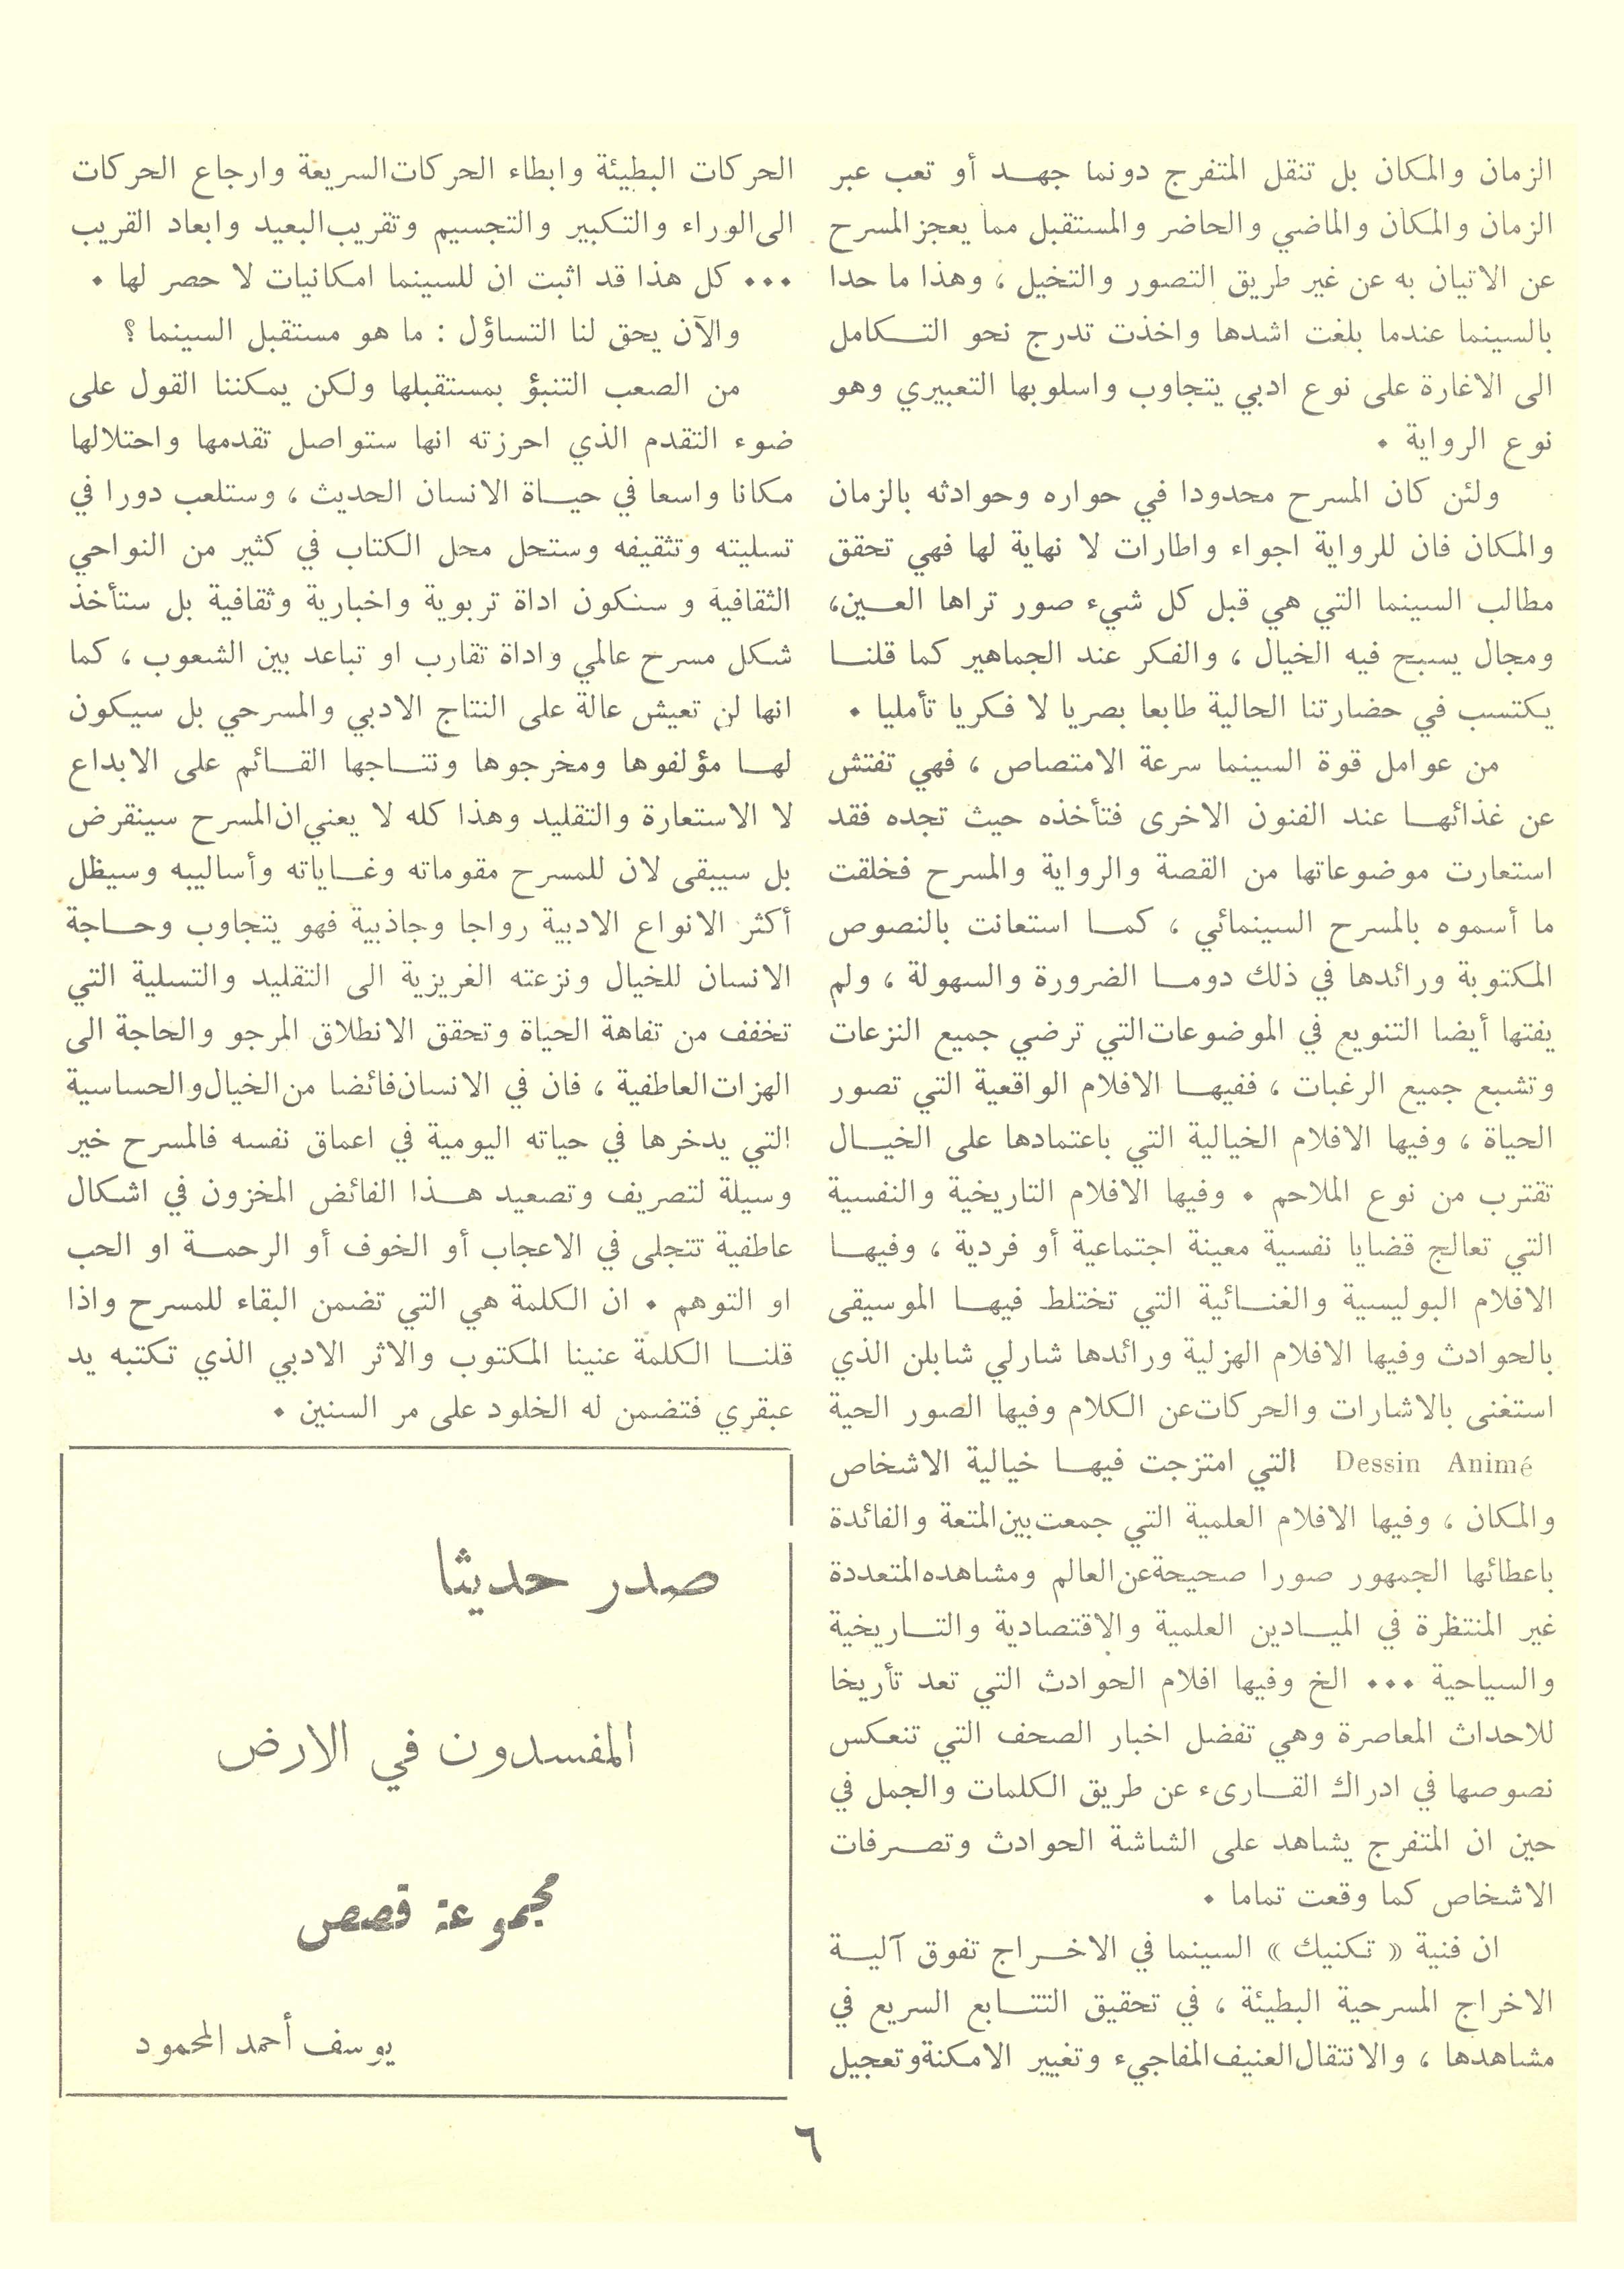 الزمان والمكان بل تنقل المتفرج دونما جهد أو تعب عبر
الزمان والمكان والماضي والحاضر والمستقبل مما يعجز المسرح
عن الاتيان به عن غير طريق التصور والتخيل ، وهذا ما حدا
بالسينما عندما بلغت اشدها واخذت تدرج نحو التكامل
الى الاغارة على نوع ادبي يتجاوب واسلوبها التعبيري وهو
نوع الرواية .
ولئن كان المسرح محدودا في حواره وحوادثه بالزمان
والمكان فان للرواية اجواء واطارات لا نهاية لها فهي تحقق
مطالب السينما التي هي قبل كل شيء صور تراها العين،
ومجال يسبح فيه الخيال ، والفكر عند الجماهير كما قلنا
يكتسب في حضارتنا الحالية طابعا بصريا لا فكريا تأمليا .
من عوامل قوة السينما سرعة الامتصاص ، فهي تفتش
عن غذائها عند الفنون الاخرى فتأخذه حيث تجده فقد
استعارت موضوعاتها من القصة والرواية والمسرح فخلقت
ما أسموه بالمسرح السينمائي ، كما استعانت بالنصوص
المكتوبة ورائدها في ذلك دوما الضرورة والسهولة ، ولم
يفتها أيضا التنويع في الموضوعات التي ترضي جميع النزعات
وتشبع جميع الرغبات ، ففيها الافلام الواقعية التي تصور
الحياة ، وفيها الافلام الخيالية التي باعتمادها على الخيال
تقترب من نوع الملاحم . وفيها الافلام التاريخية والنفسية
التي تعالج قضايا نفسية معينة اجتماعية أو فردية ، وفيها
الافلام البوليسية والغنائية التي تختلط فيها الموسيقى
بالحوادث وفيها الافلام الهزلية ورائدها شارلي شابلن الذي
استغنى بالاشارات والحركات عن الكلام وفيها الصور الحية
Dessin Animé التي امتزجت فيها خيالية الاشخاص
والمكان ، وفيها الافلام العلمية التي جمعت بين المتعة والفائدة
باعطائها الجمهور صورا صحيحة عن العالم ومشاهده المتعددة
غير المنتظرة في الميادين العلمية والاقتصادية والتاريخية
والسياحية ... الخ وفيها افلام الحوادث التي تعد تأريخا
للاحداث المعاصرة وهي تفضل اخبار الصحف التي تنعكس
نصوصها في ادراك القارىء عن طريق الكلمات والجمل في
حين ان المتفرج يشاهد على الشاشة الحوادث وتصرفات
الاشخاص كما وقعت تماما .
ان فنية « تكنيك » السينما في الاخراج تفوق آلية
الاخراج المسرحية البطيئة ، في تحقيق التتابع السريع في
مشاهدها ، والانتقال العنيف المفاجيء وتغيير الامكنة وتعجيل
الحركات البطيئة وابطاء الحركات السريعة وارجاع الحركات
الى الوراء والتكبير والتجسيم وتقريب البعيد وابعاد القريب
... كل هذا قد اثبت ان للسينما امكانيات لا حصر لها .
والآن يحق لنا التساؤل : ما هو مستقبل السينما ؟
من الصعب التنبؤ بمستقبلها ولكن يمكننا القول على
ضوء التقدم الذي احرزته انها ستواصل تقدمها واحتلالها
مكانا واسعا في حياة الانسان الحديث ، وستلعب دورا في
تسليته وتثقيفه وستحل محل الكتاب في كثير من النواحي
الثقافية و ستكون اداة تربوية واخبارية وثقافية بل ستأخذ
شكل مسرح عالمي واداة تقارب او تباعد بين الشعوب ، كما
انها لن تعيش عالة على النتاج الادبي والمسرحي بل سيكون
لها مؤلفوها ومخرجوها ونتاجها القائم على الابداع
لا الاستعارة والتقليد وهذا كله لا يعني ان المسرح سينقرض
بل سيبقى لان للمسرح مقوماته وغاياته وأساليبه وسيظل
أكثر الانواع الادبية رواجا وجاذبية فهو يتجاوب وحاجة
الانسان للخيال ونزعته الغريزية الى التقليد والتسلية التي
تخفف من تفاهة الحياة وتحقق الانطلاق المرجو والحاجة الى
الهزات العاطفية ، فان في الانسان فائضا من الخيال والحساسية
التي يدخرها في حياته اليومية في اعماق نفسه فالمسرح خير
وسيلة لتصريف وتصعيد هذا الفائض المخزون في اشكال
عاطفية تتجلى في الاعجاب أو الخوف أو الرحمة او الحب
او التوهم . ان الكلمة هي التي تضمن البقاء للمسرح واذا
قلنا الكلمة عنينا المكتوب والاثر الادبي الذي تكتبه يد
عبقري فتضمن له الخلود على مر السنين .
صدر حديثا
المفسدون في الارض
مجموعة قصص
يوسف أحمد المحمود
٦